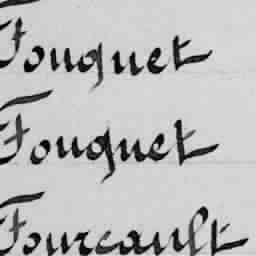 Fouquet
Fouquet
Fourcault